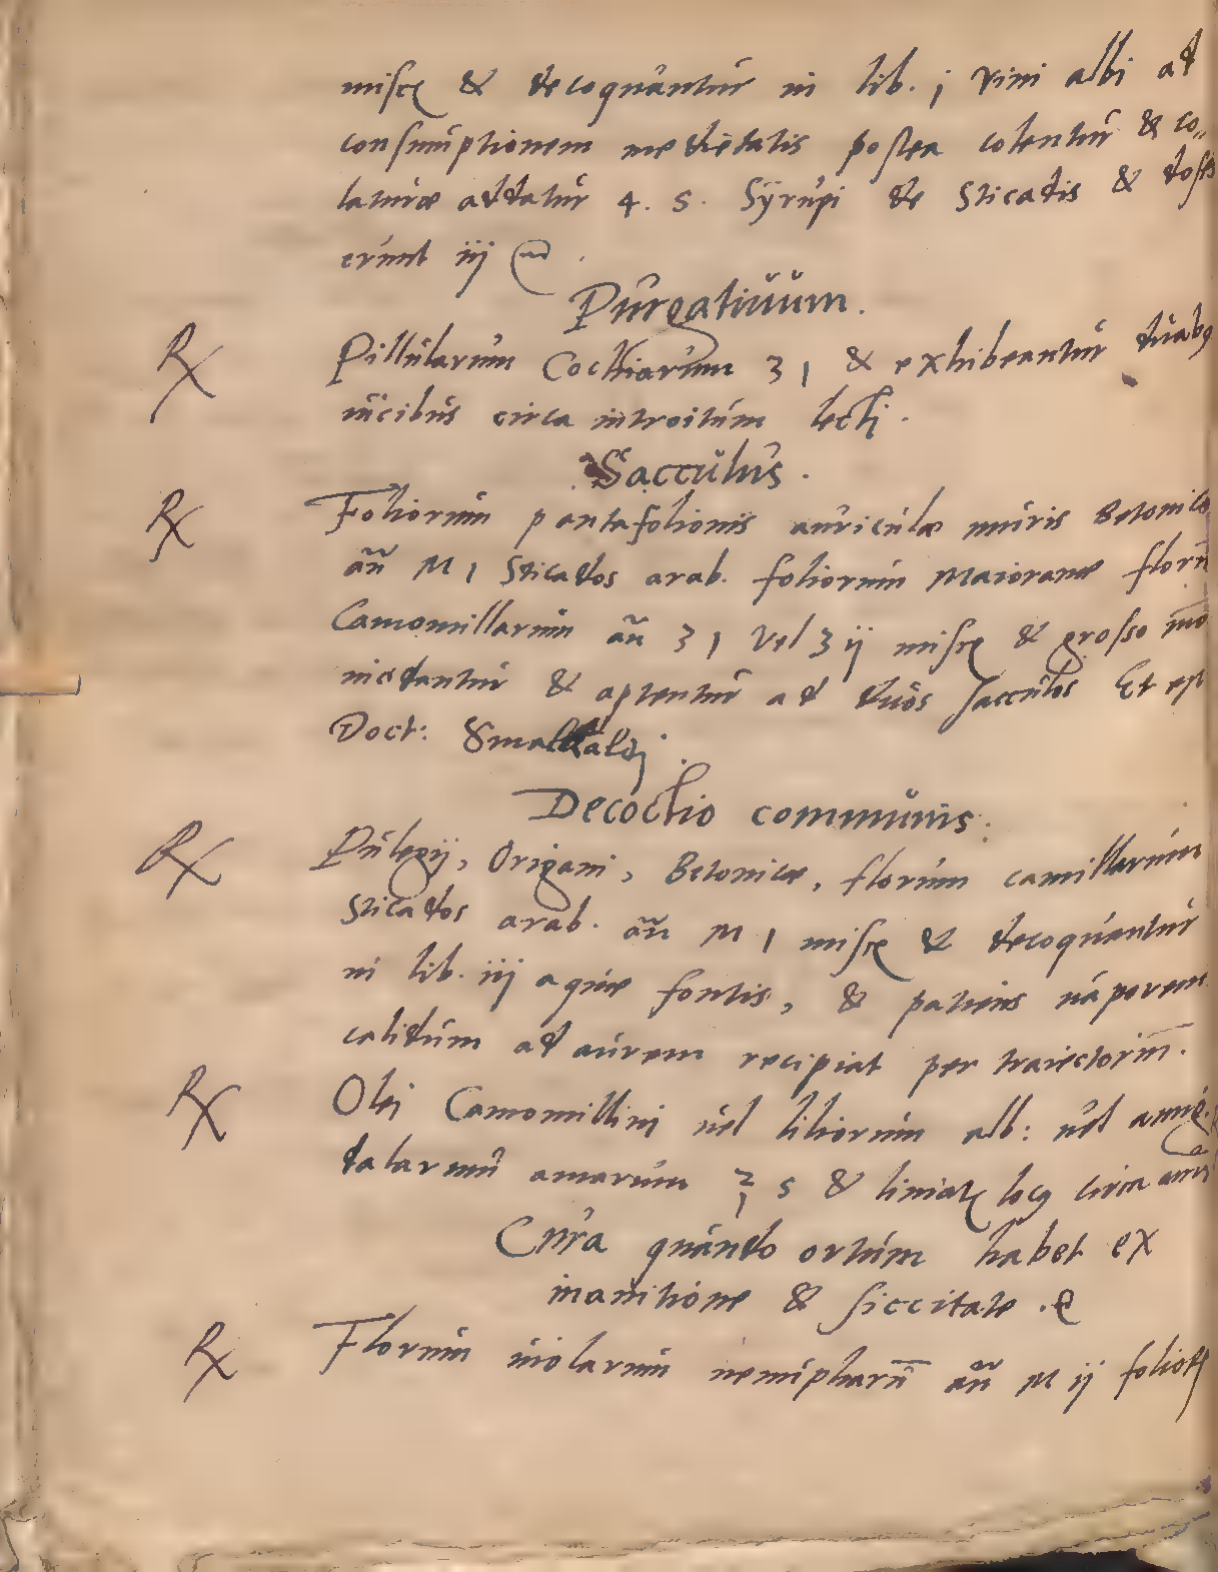 misce & decoquantur in lib. j vini albi ad
consumptionem medietatis postea colentur & co„
laturæ addatur 4. s. Syrupi de Sticadis & doses
erunt iij
Purgatiuum.
℞ Pillularum Cochiarum ʒ j & exhibeantur duabus
uicibus circa introitum lecti.
Sacculus.
℞ Foliorum pantafolionis auriculæ muris Betonicæ
añ M j Sticados arab. foliorum Maioranæ florum
Camomillarum añ ʒ j vel ʒ ij misce & grosso mo
niedantur & aptentur ad duos sacculos Et est
Doct:
Decoctio communis.
℞ Pulegij, Origani, Betonicæ, florum camillarum
Sticados arab. añ M j misce & decoquantur
in lib. iij aquæ fontis, & patiens uaporem
calidum ad aurem recipiat per traiectoriū.
℞ Olei Camomillini uel liliorum alb: uel amig.
dalarum amarum ℥ s & liniatur locus circa aures
Cura quando ortum habet ex
inanitione & siccitate.
℞ Florum uiolarum nenupharū añ M ij foliorum